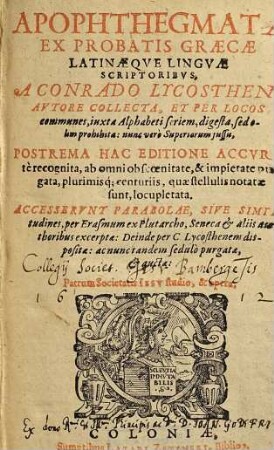 APOPHTHEGMATA
EX PROBATIS GRÆCÆ
LATINÆQVE LINGVÆ
SCRIPTORIBVS,
A CONRADO LYCOSTHEN
AVTORE COLLECTA, ET PER LOCOS
communes, iuxta Alphabeti seriem, digesta, sed o
lim prohibita: nunc verò Superiorum jussu,
POSTREMA HAC EDITIONE ACCVR
tè recognita, ab omni obscœnitate, & impietate pu
gata, plurimisq́; centuriis, quæ stellulis notatæ
sunt, locupletata.
ACCESSERVNT PARABOLAE, SIVE SIMI
tudines, per Erasmum ex Plutarcho, Seneca & aliis au
thoribus excerptæ: Deinde per C. Lycosthenem dis
positæ: ac nunc tandem sedulò purgatæ,
Collegij Societ. Bambergensis
Patrum Societatis IESV studio, & opera,
1612
Ex dono
COLONIÆ,
Sumptibus LAZARI